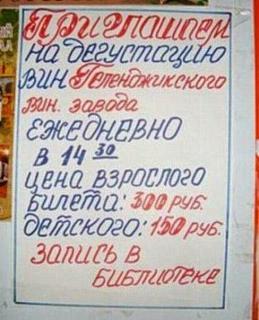 Приглашаем
на дегустацию
вин Геленджикского
вин. завода
ежедневно
в 14 30
цена взрослого
билета: 300 руб.
детского: 150 руб.
запись в
библиотеке